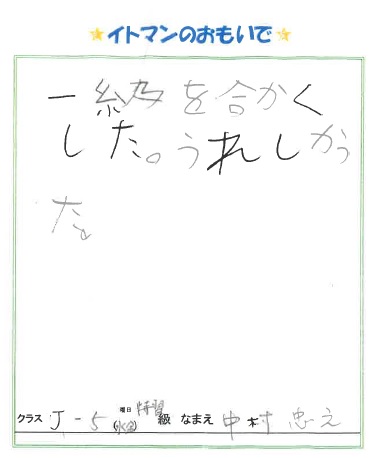 イトマンのおもいで
一級を合かく
した。うれしかっ
た。
クラス J-5 曜日 (水金) 特習 級 なまえ 中村忠え